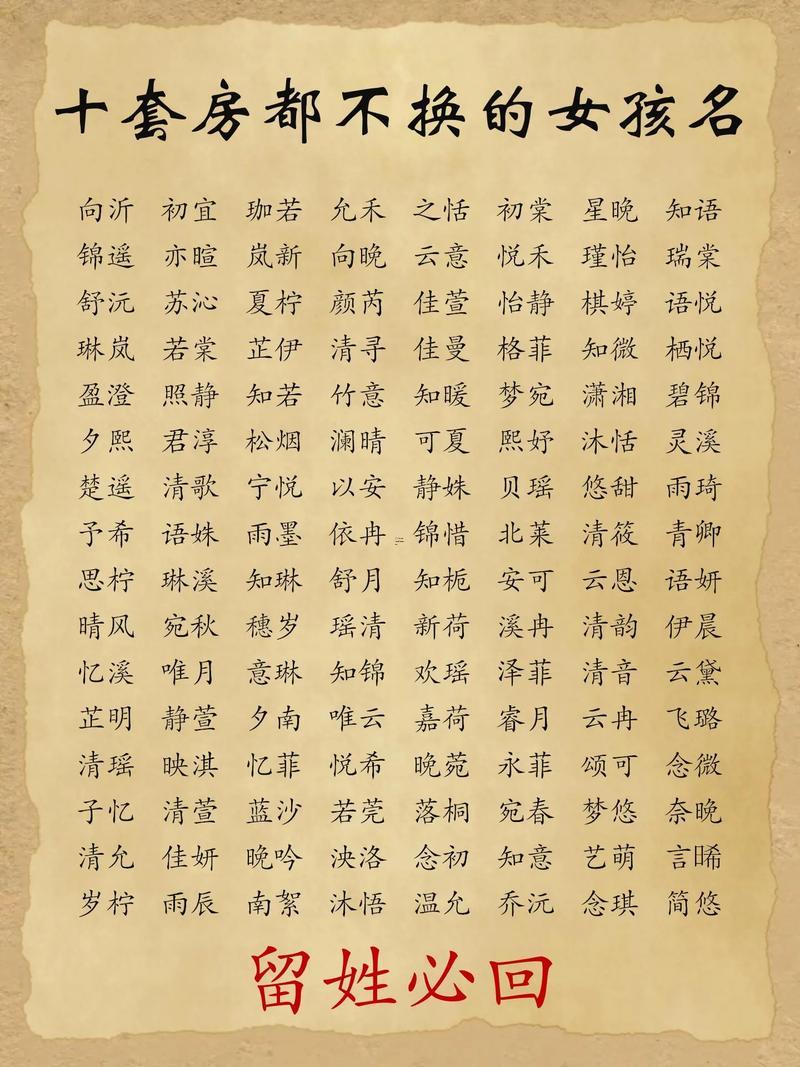 十套房都不换的女孩名
向沂 初宜 珈若 允禾 之恬 初棠 星晚 知语
锦遥 亦暄 岚新 向晚 云意 悦禾 瑾怡 瑞棠
舒沅 苏沁 夏柠 颜芮 佳萱 怡静 棋婷 语悦
琳岚 若棠 芷伊 清寻 佳曼 格菲 知微 栖悦
盈澄 照静 知若 竹意 知暖 梦宛 潇湘 碧锦
夕熙 君淳 松烟 澜晴 可夏 熙妤 沐恬 灵溪
楚遥 清歌 宁悦 以安 静姝 贝瑶 悠甜 雨琦
予希 语姝 雨墨 依冉 锦惜 北莱 清筱 青卿
思柠 琳溪 知琳 舒月 知栀 安可 云恩 语妍
晴风 宛秋 穗岁 瑶清 新荷 溪冉 清韵 伊晨
忆溪 唯月 意琳 知锦 欢瑶 泽菲 清音 云黛
芷明 静萱 夕南 唯云 嘉荷 睿月 云冉 飞璐
清瑶 映淇 忆菲 悦希 晚菀 永菲 颂可 念微
子忆 清萱 蓝沙 若莞 落桐 宛春 梦悠 奈晚
清允 佳妍 晚吟 泱洛 念初 知意 艺萌 言晞
岁柠 雨辰 南絮 沐悟 温允 乔沅 念琪 简悠
留姓必回